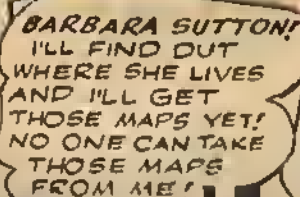 BARBARA SUTTON!
I'LL FIND OUT
WHERE SHE LIVES
AND I'LL GET
THOSE MAPS YET!
NO ONE CAN TAKE
THOSE MAPS
FROM ME!